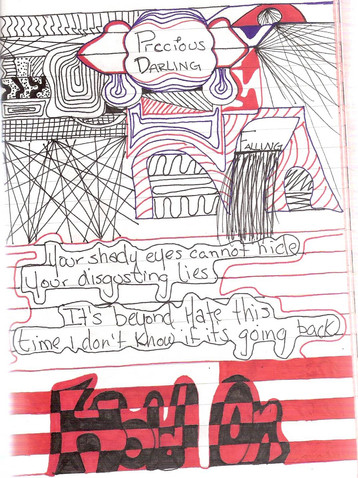 Precious
DARLING
FALLING
Your shady eyes cannot hide
your disgusting lies.
It's beyond Hate this
time I don't know if it's going back
Hold On